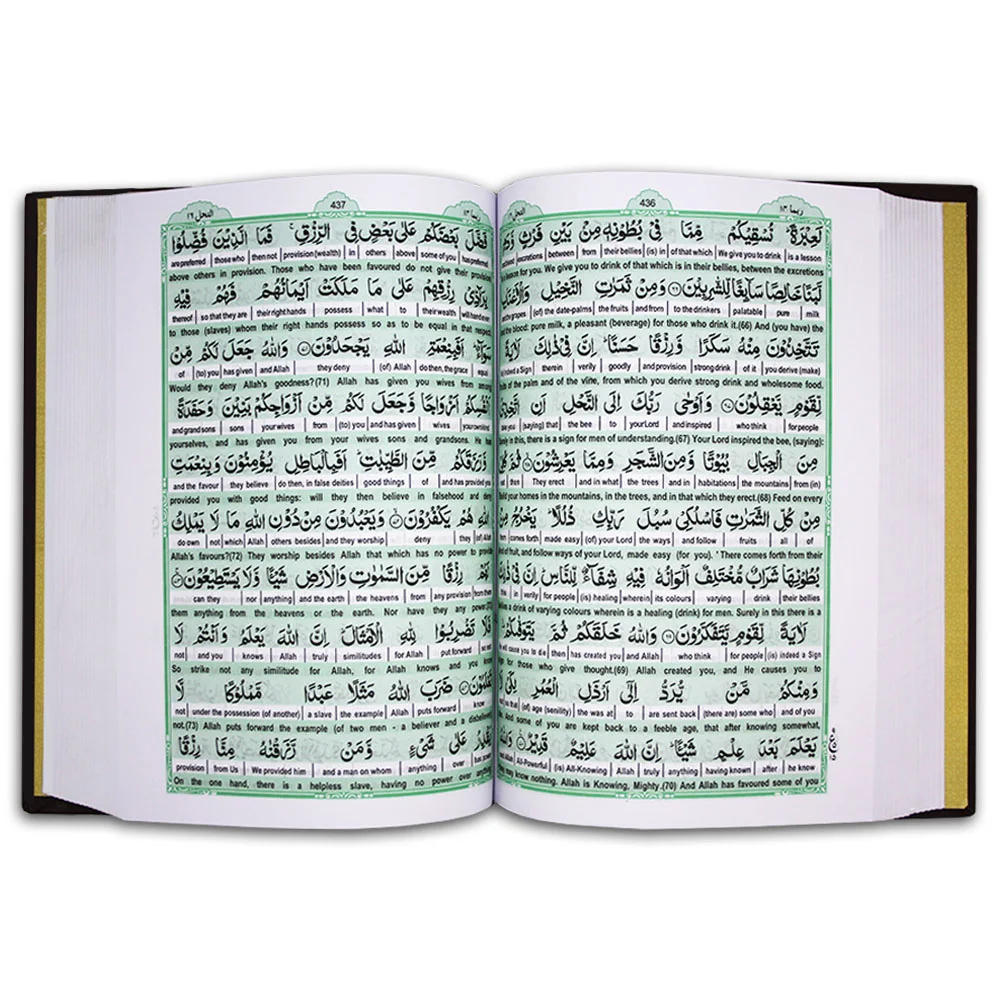 النحل ١٦ 436 ربما ١٤
لَعِبْرَةً ؕ نُسْقِيْكُمْ مِّمَّا فِيْ بُطُوْنِهٖ مِنْۢ بَيْنِ فَرْثٍ وَّدَمٍ
excrement | between | from | their bellies | (is) in | of that which | We give you to drink | is a lesson
a lesson for you. We give you to drink of that which is in their bellies, between the excretions
لَّبَنًا خَالِصًا سَآىِٕغًا لِّلشّٰرِبِيْنَ ۶۶ وَمِنْ ثَمَرٰتِ النَّخِيْلِ وَالْاَعْنَابِ
the grapes | (of) the date-palms | the fruits | and from | to the drinkers | palatable | pure | milk
and the blood: pure milk, a pleasant (beverage) for those who drink it.(66) And (you have) the
تَتَّخِذُوْنَ مِنْهُ سَكَرًا وَّرِزْقًا حَسَنًا ؕ اِنَّ فِيْ ذٰلِكَ لَاٰيَةً
indeed a Sign | therein | verily | goodly | and provision | strong drink | of it | you derive (make)
fruits of the palm and of the vine, from which you derive strong drink and wholesome food.
لِّقَوْمٍ يَّعْقِلُوْنَ ۶۷ وَاَوْحٰى رَبُّكَ اِلَى النَّحْلِ اَنِ اتَّخِذِيْ
(saying) that | the bee | to | your Lord | and inspired | who think | for people
Surely in this, there is a sign for men of understanding.(67) Your Lord inspired the bee, (saying):
مِنَ الْجِبَالِ بُيُوْتًا وَّمِنَ الشَّجَرِ وَمِمَّا يَعْرِشُوْنَ ۶۸ ثُمَّ كُلِيْ
then | They erect | and in what | the trees | and in | habitations | the mountains | from (in)
Build your homes in the mountains, in the trees, and in that which they erect.(68) Feed on every
مِنْ كُلِّ الثَّمَرٰتِ فَاسْلُكِيْ سُبُلَ رَبِّكِ ذُلُلًا ؕ يَخْرُجُ مِنْۢ
comes forth | made easy | (of) your Lord | the ways | and follow | fruits | all | of
kind of fruit, and follow ways of your Lord, made easy (for you). ' There comes forth from their
بُطُوْنِهَا شَرَابٌ مُّخْتَلِفٌ اَلْوَانُهٗ فِيْهِ شِفَآءٌ لِّلنَّاسِ ؕ اِنَّ فِيْ ذٰلِكَ
this | in | verily | for people | (is) healing | wherein | its colours | varying | drink | their bellies
bellies a drink of varying colours wherein is a healing (drink) for men. Surely in this there is a
لَاٰيَةً لِّقَوْمٍ يَّتَفَكَّرُوْنَ ۶۹ وَاللّٰهُ خَلَقَكُمْ ثُمَّ يَتَوَفّٰىكُمْ ۙ
will cause you to die | then | has created you | and Allah | who think | for people | (is) indeed a Sign
sign for those who give thought.(69) Allah created you, and He causes you to
وَمِنْكُمْ مَّنْ يُّرَدُّ اِلٰٓى اَرْذَلِ الْعُمُرِ لِكَيْ لَا
(of) age (senility) | the was at | to | are sent back | (there are) some who | and of you
And some of you are kept back to a feeble age, that after knowing somewhat,
يَعْلَمَ بَعْدَ عِلْمٍ شَيْـًٔا ؕ اِنَّ اللّٰهَ عَلِيْمٌ قَدِيْرٌ ۷۰ وَاللّٰهُ
All-Powerful | (is) All-Knowing | Allah | truly | anything | having known | after | he know
may know nothing. Allah is Knowing, Mighty.(70) And Allah has favoured some of you
النحل ١٦ 437 ربما ١٤
فَضَّلَ بَعْضَكُمْ عَلٰى بَعْضٍ فِي الرِّزْقِ ۚ فَمَا الَّذِيْنَ فُضِّلُوْا
are preferred | those who | then not | provision (wealth) | in | others | above | some of you | has preferred
above others in provision. Those who have been favoured do not give their provision
بِرَآدِّيْ رِزْقِهِمْ عَلٰى مَا مَلَكَتْ اَيْمَانُهُمْ فَهُمْ فِيْهِ
thereof | so that they are | their right hands | possess | what | to | their wealth | will hand over
to those (slaves) whom their right hands possess so as to be equal in that respect.
سَوَآءٌ ؕ اَفَبِنِعْمَةِ اللّٰهِ يَجْحَدُوْنَ ۷۱ وَاللّٰهُ جَعَلَ لَكُمْ مِّنْ
of | (to) you | has given | and Allah | they deny | (of) Allah | do then, the grace | equal
Would they deny Allah's goodness?(71) Allah has given you wives from among
اَنْفُسِكُمْ اَزْوَاجًا وَّجَعَلَ لَكُمْ مِّنْ اَزْوَاجِكُمْ بَنِيْنَ وَحَفَدَةً
and grand sons | sons | your wives | from | (to) you | and has given | wives | your own kind
yourselves, and has given you from your wives sons and grandsons. He has
وَّرَزَقَكُمْ مِّنَ الطَّيِّبٰتِ ؕ اَفَبِالْبَاطِلِ يُؤْمِنُوْنَ وَبِنِعْمَتِ
and the favour | they believe | do then, in false deities | good things | of | and has provided you
provided you with good things: will they then believe in falsehood and deny
اللّٰهِ هُمْ يَكْفُرُوْنَ ۷۲ وَيَعْبُدُوْنَ مِنْ دُوْنِ اللّٰهِ مَا لَا يَمْلِكُ
do own | not | which | Allah | others besides | and they worship | deny | they | (of) Allah
Allah's favours?(72) They worship besides Allah that which has no power to provide
لَهُمْ رِزْقًا مِّنَ السَّمٰوٰتِ وَالْاَرْضِ شَيْـًٔا وَّلَا يَسْتَطِيْعُوْنَ ۷۳
can they | nor | anything | and the earth | the heavens | from | any provision | for them
them anything from the heavens or the earth. Nor have they any power
فَلَا تَضْرِبُوْا لِلّٰهِ الْاَمْثَالَ ؕ اِنَّ اللّٰهَ يَعْلَمُ وَاَنْتُمْ لَا
not | and you | knows | Allah | truly | similitudes | for Allah | put forward | so not
So strike not any similitude for Allah, for Allah knows and you know
تَعْلَمُوْنَ ۷۴ ضَرَبَ اللّٰهُ مَثَلًا عَبْدًا مَّمْلُوْكًا لَّا
not | under the possession (of another) | a slave | the example | Allah | puts forward | know
not.(73) Allah puts forward the example (of two men - a believer and a disbeliever).
يَقْدِرُ عَلٰى شَيْءٍ وَّمَنْ رَّزَقْنٰهُ مِنَّا رِزْقًا
provision | from Us | We provided him | and a man on whom | anything | over | has power
On the one hand, there is a helpless slave, having no power over anything